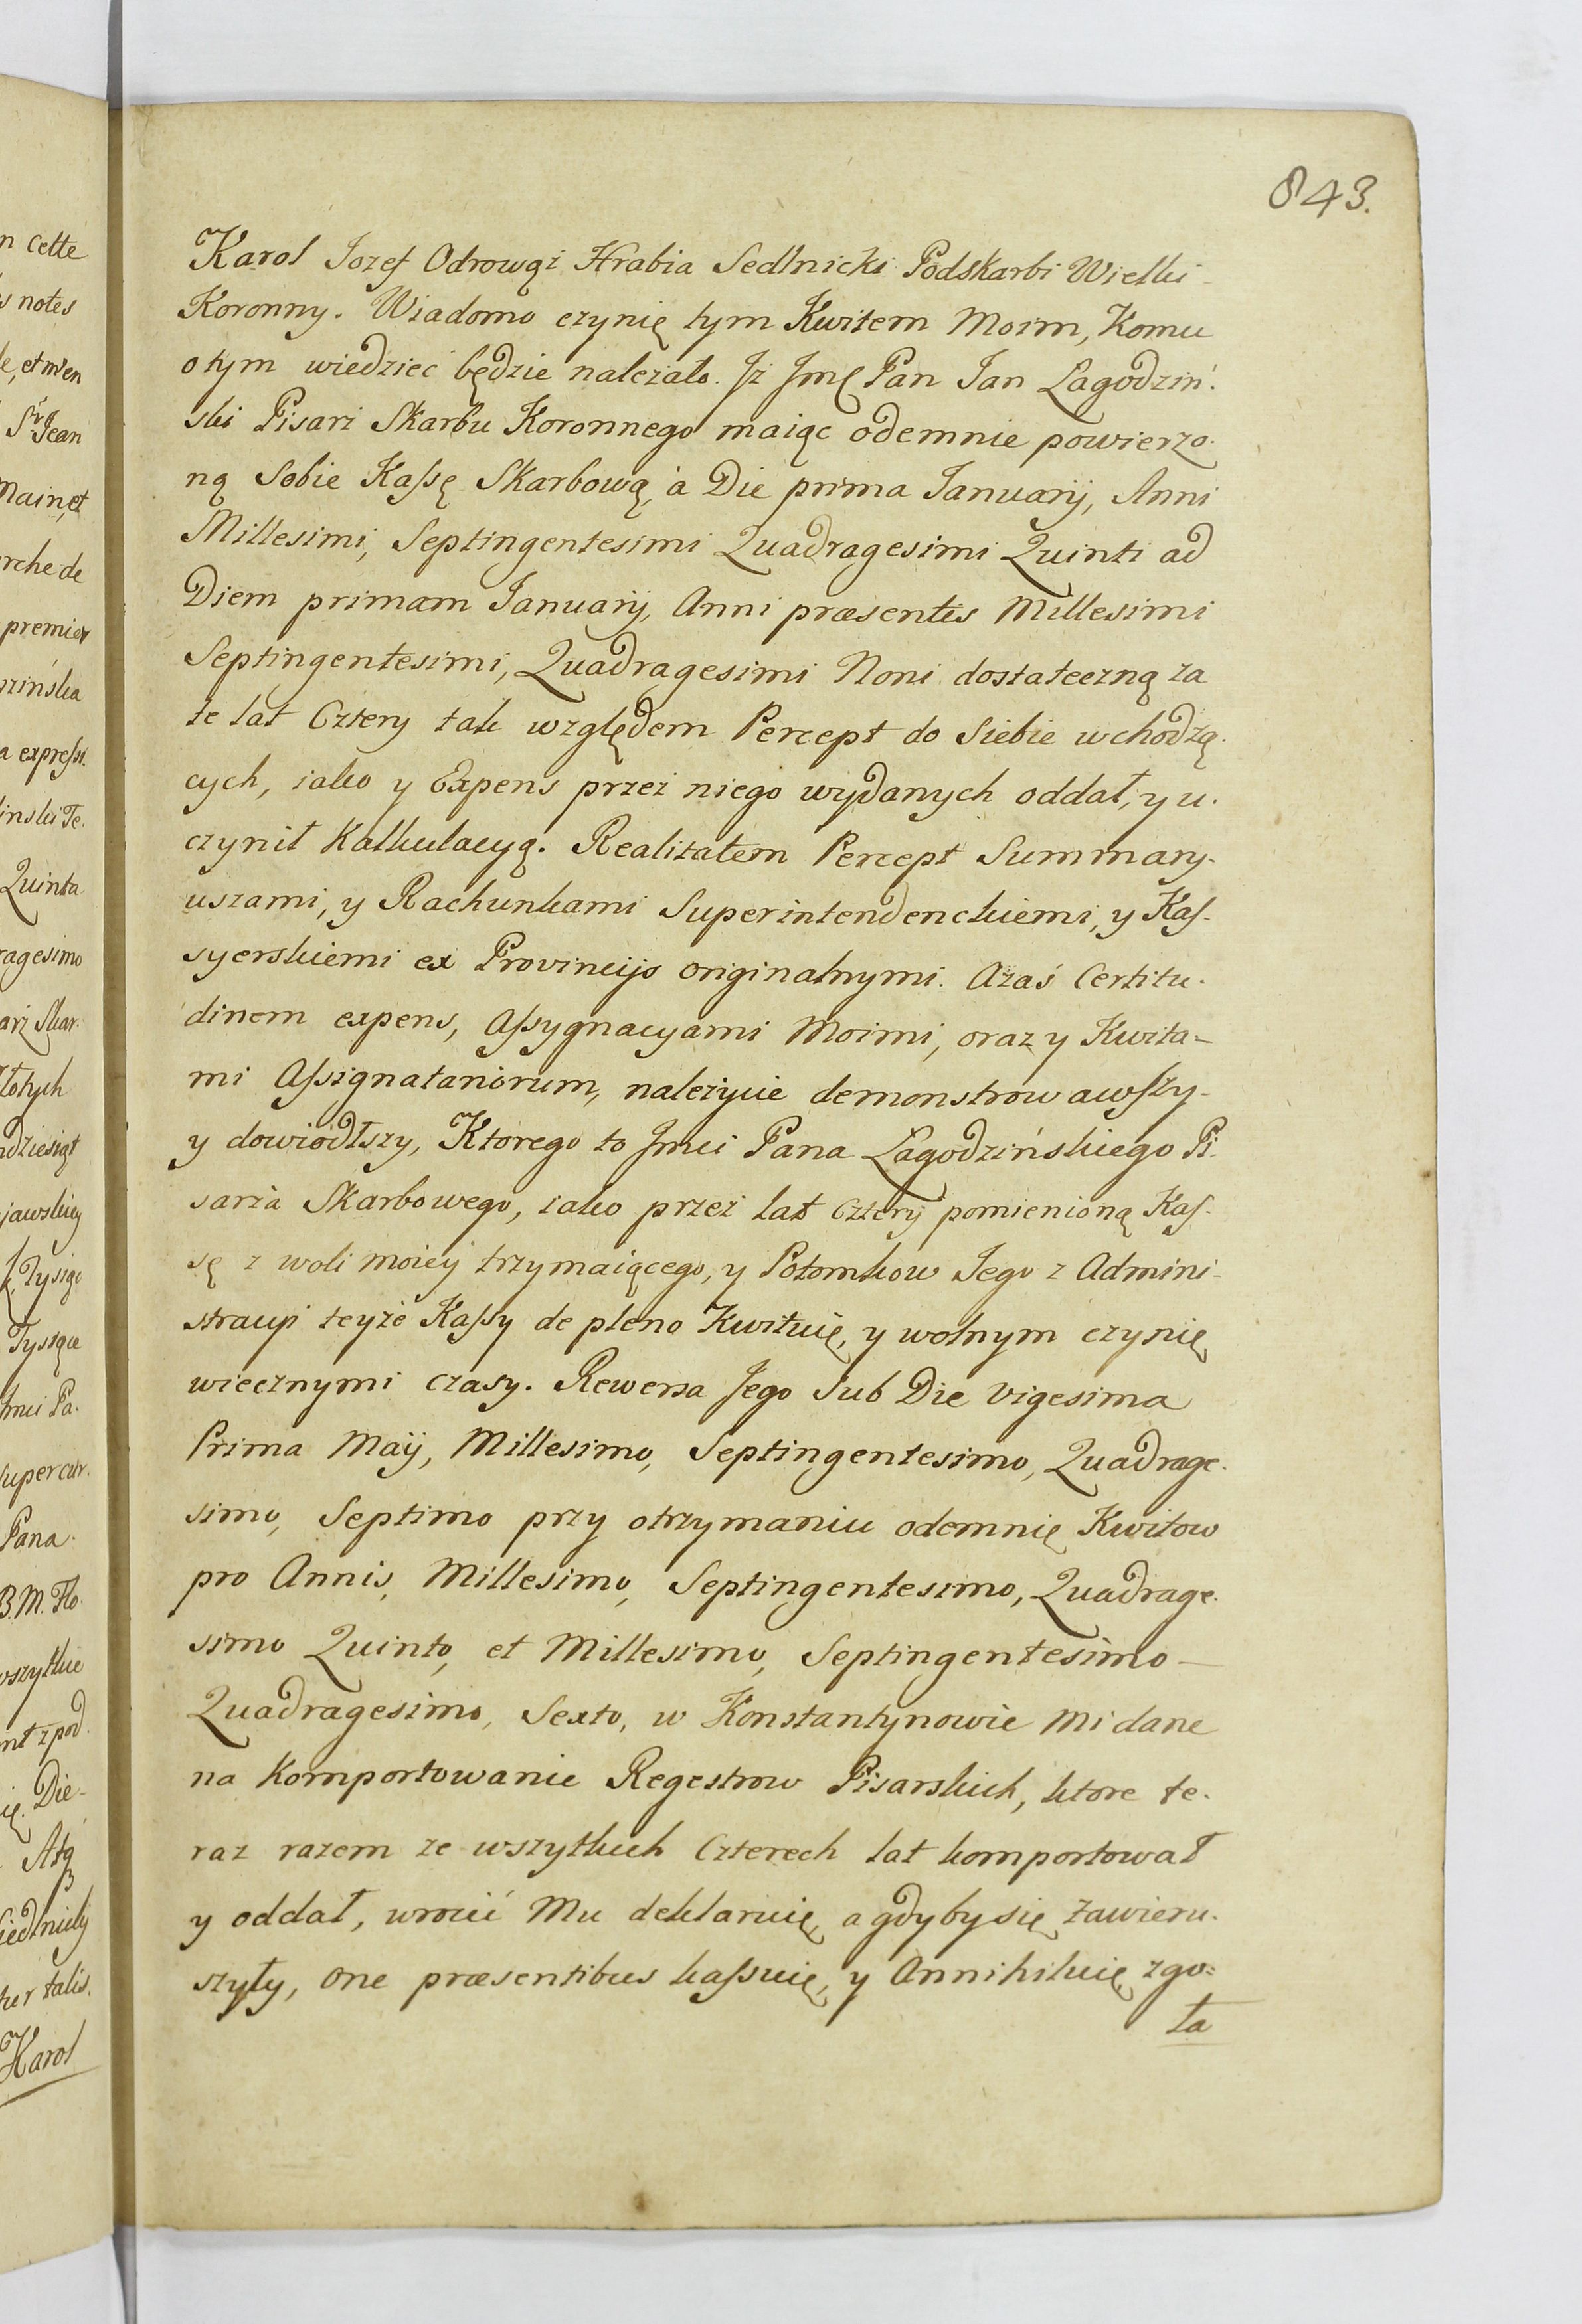 843.
Karol Jozef Odrowąż Hrabia Sedlnicki Podskarbi Wielki
Koronny. Wiadomo czynię tym Kwitem Moim, Komu
o tym wiedzieć będzie należało. Jż Jmć Pan Jan Łagodziń.
ski Pisarz Skarbu Koronnego maiąc odemnie powierzo.
ną Sobie Kaſsę Skarbową, à Die prima Januarij, Anni
Millesimi, Septingentesimi Quadragesimi Quinti ad
Diem primam Januarij, Anni præsentis Millesimi
Septingentesimi, Quadragesimi Noni dostateczną za
te lat Cztery tak względem Percept do Siebie wchodzą.
cych, iako y Expens przez niego wydanych oddał, y u.
czynił Kalkulacyą. Realitatem Percept Summary-
uszami, y Rachunkami Superintendenckiemi, y Kaſ-
syerskiemi ex Provincijs originalnymi. Azaś Certitu-
dinem expens, Aſsygnacyami Moimi, oraz y Kwita=
mi Aſsignatariorum, należycie demonstrowawſzy-
y dowiodłszy, Ktorego to Jmci Pana Łagodzińskiego Pi.
sarza Skarbowego, iako przez lat Cztery pomienioną Kaſ-
sę z woli moiey trzymaiącego, y Potomkow Jego z Admini-
stracyi teyże Kaſsy de pleno Kwituię, y wolnym czynię
wiecznymi czasy. Rewersa Jego Sub Die vigesima
Prima Maij, Millesimo, Septingentesimo, Quadrage-
simo, Septimo przy otrzymaniu odemnię Kwitow
pro Annis, Millesimo, Septingentesimo, Quadrage-
simo Quinto, et Millesimo, Septingentesimo—
Quadragesimo, Sexto, w Konstantynowie mi dane
na Komportowanie Regestrow Pisarskich, ktore te-
raz razem ze wszytkich Czterech lat komportował
y oddał, wrocić Mu deklaruię, a gdyby się zawieru-
szyły, one præsentibus kaſsuię, y Annihiluię zgo=
ła